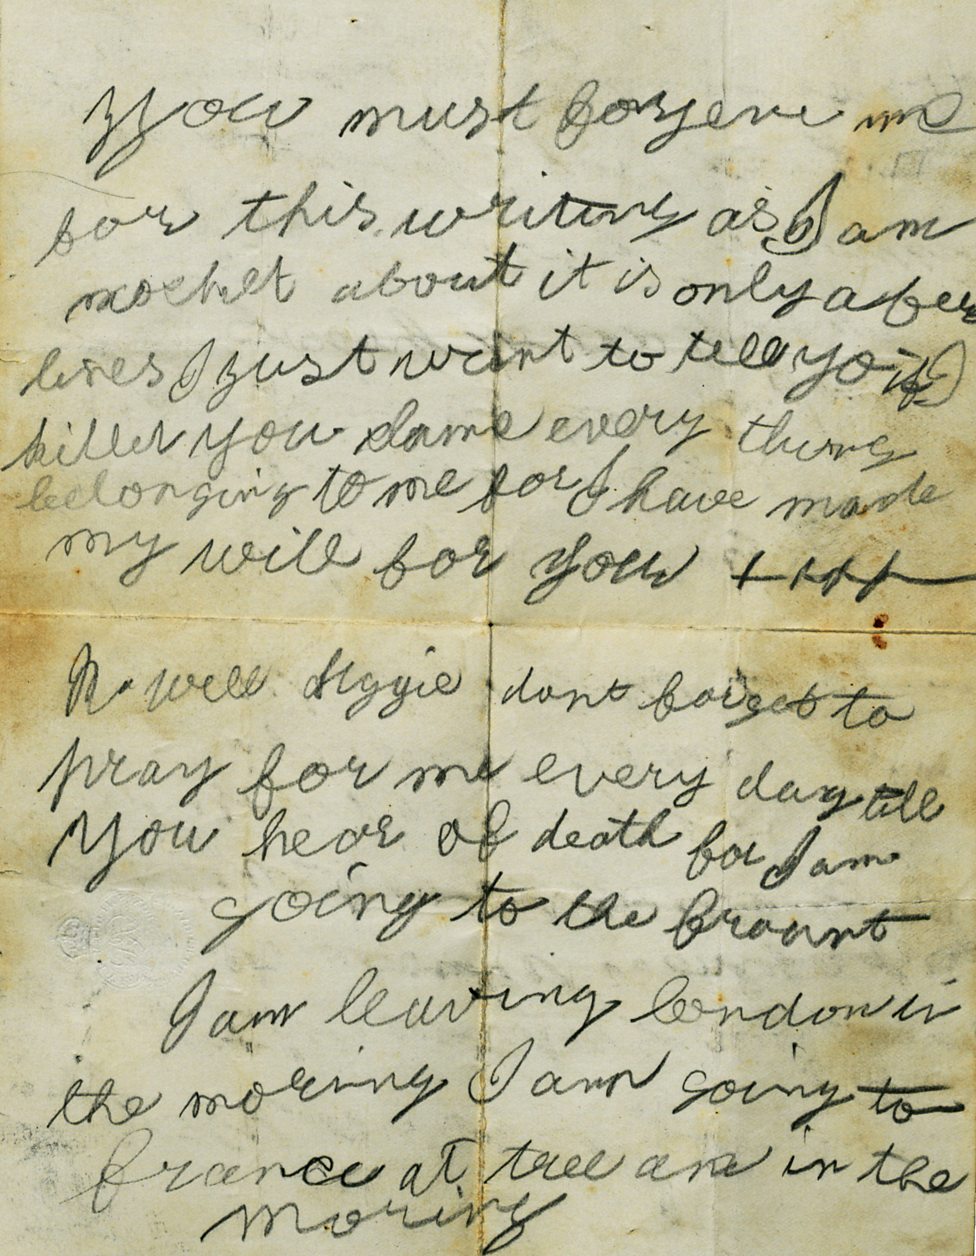 you must forgeve me
for this writing as I am
about it is only a few
lines I just want to tell you if I
killed you clame every thing
belonging to me for I have made
my will for you ++++
well Aggie dont forget to
pray for me every day till
you hear of death for I am
going to the frount
I am leaving london in
the morining I am going to
france at tree am in the
moring